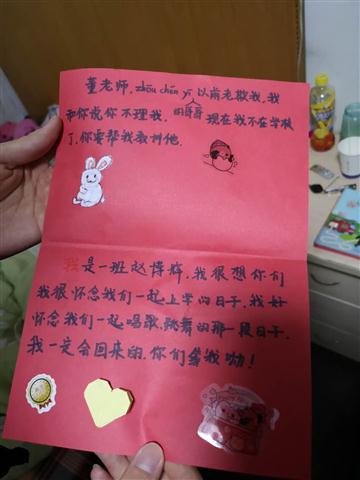 董老师，zhōu chén yī 以前老欺我，我
和你说你不理我，现在我不在学校
了，你要帮我教训他。
我是一班赵博，我很想你们
我很怀念我们一起上学的日子，我好
怀念我们一起唱歌跳舞的那一段日子，
我一定会回来的，你们等我呦！